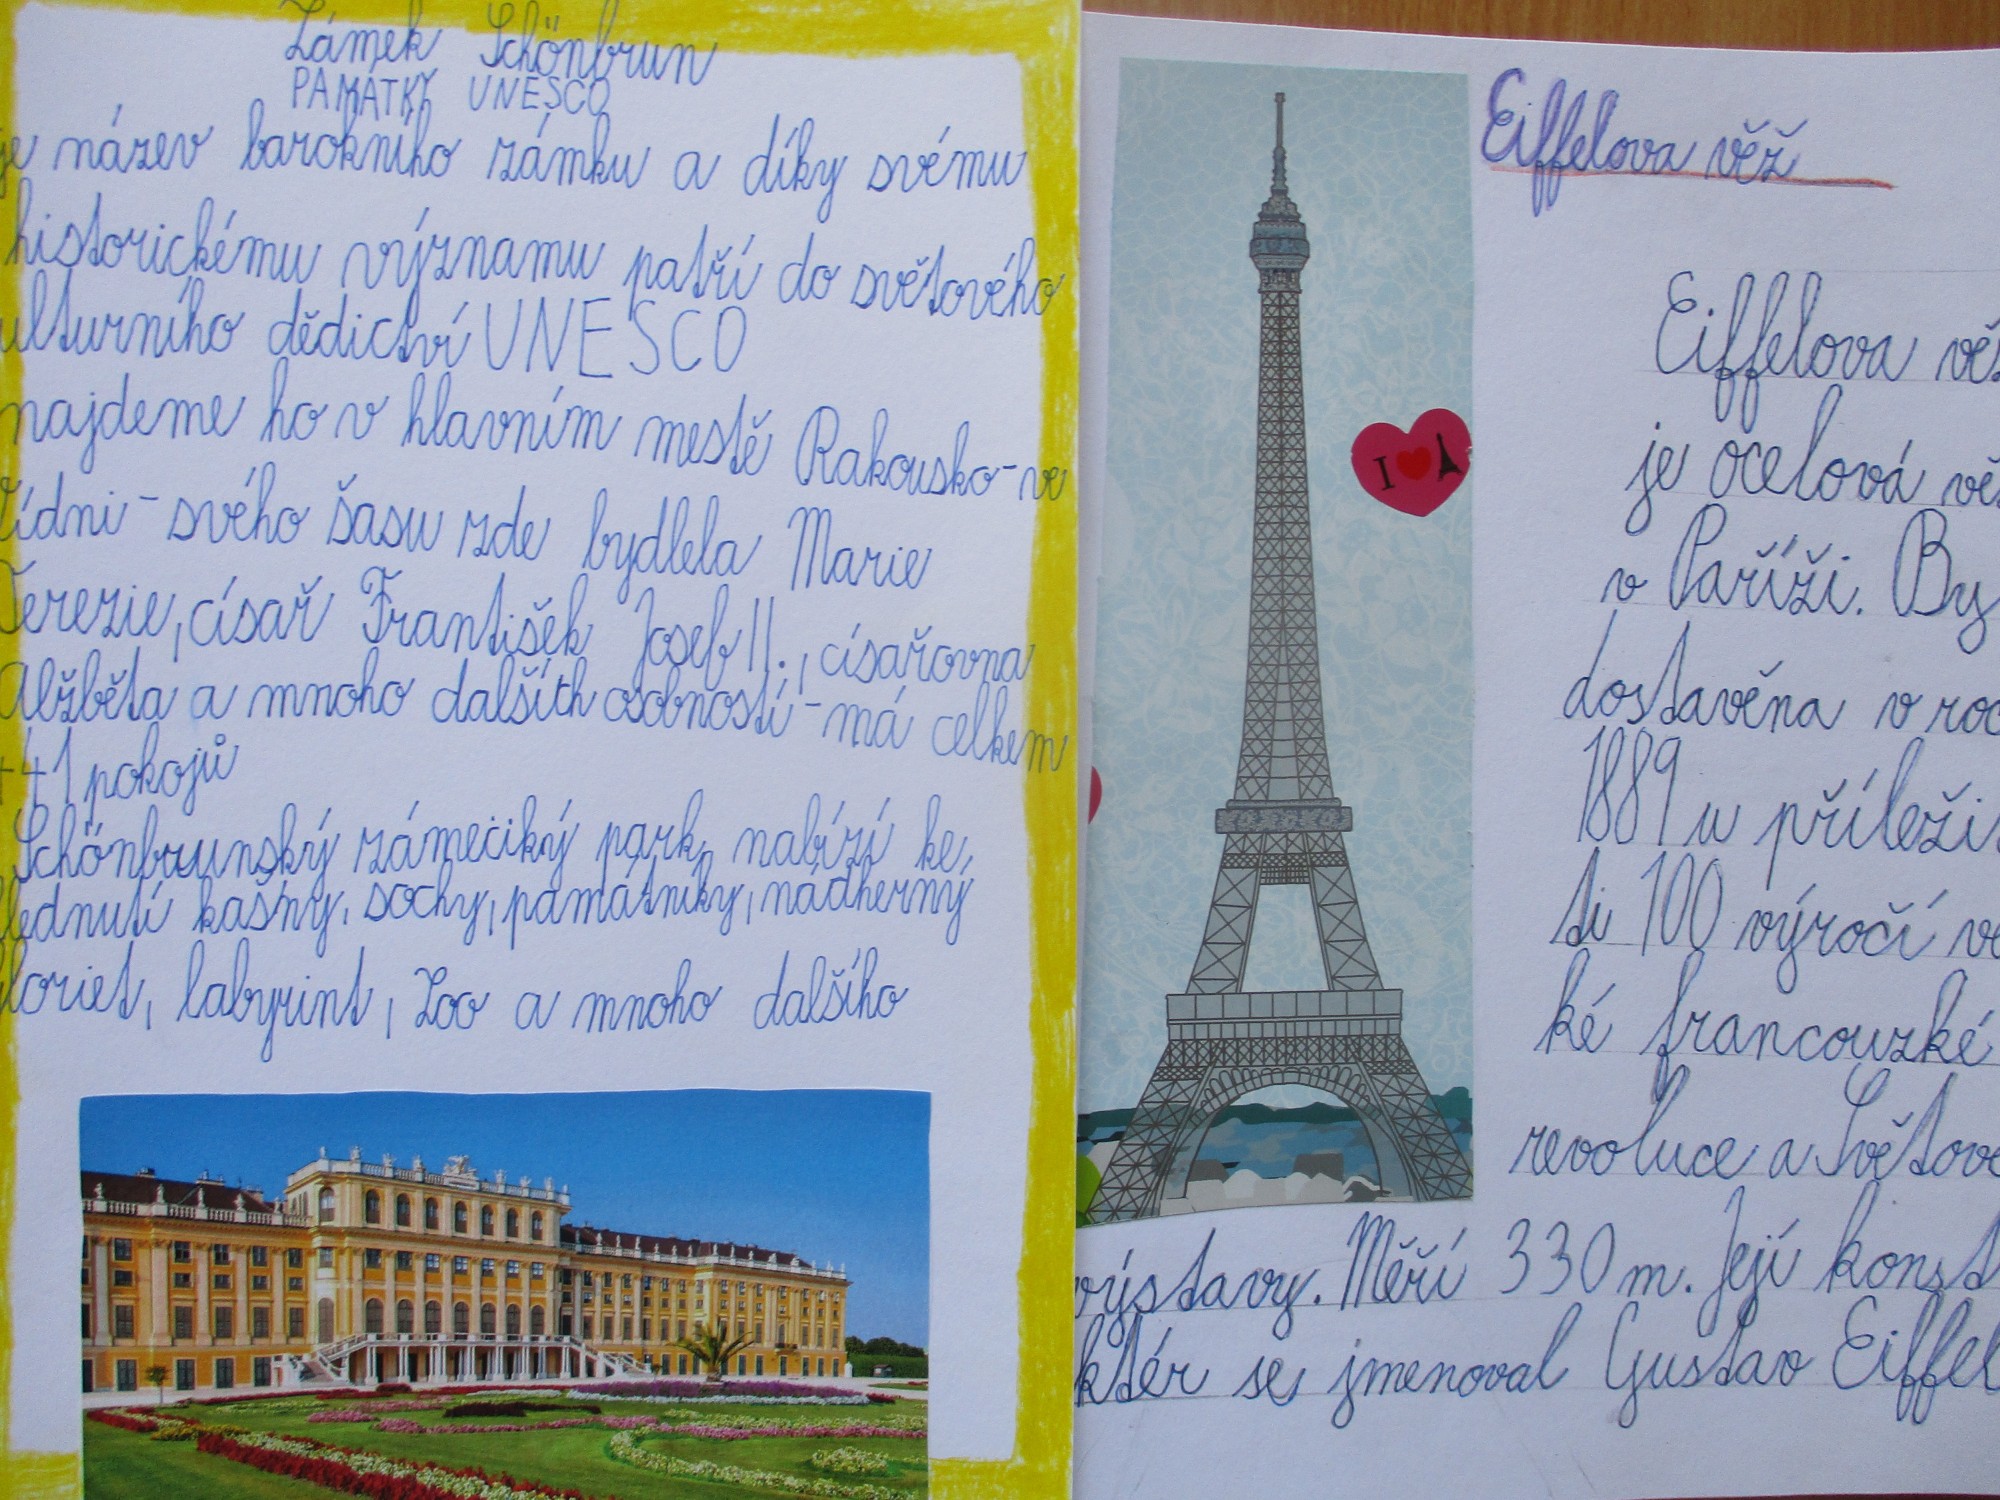 Zámek Schönbrun
PAMÁTKY UNESCO
je název barokního zámku a díky svému
historickému významu patří do světového
ulturního dědictví UNESCO
najdeme ho v hlavním mestě Rakousko-ve
vídni - svého šasu zde bydlela Marie
Terezie, císař František Josef II., císařovna
Alžběta a mnoho dalších osobností - má celkem
441 pokojů
Schönbrunský zámeciký park nabízí ke
hlédnutí kašny, sochy, památníky, nádherný
gloriet, labyrint, Zoo a mnoho dalšího
Eiffelova věž
I
Eiffelova věž
je ocelová věž
v Paříži. By
dostavěna v roc
1889 u příleži
ti 100 výročí ve
ké francouzké
revoluce a Světové
výstavy. Měří 330 m. Její konst
ktér se jmenoval Gustav Eiffel